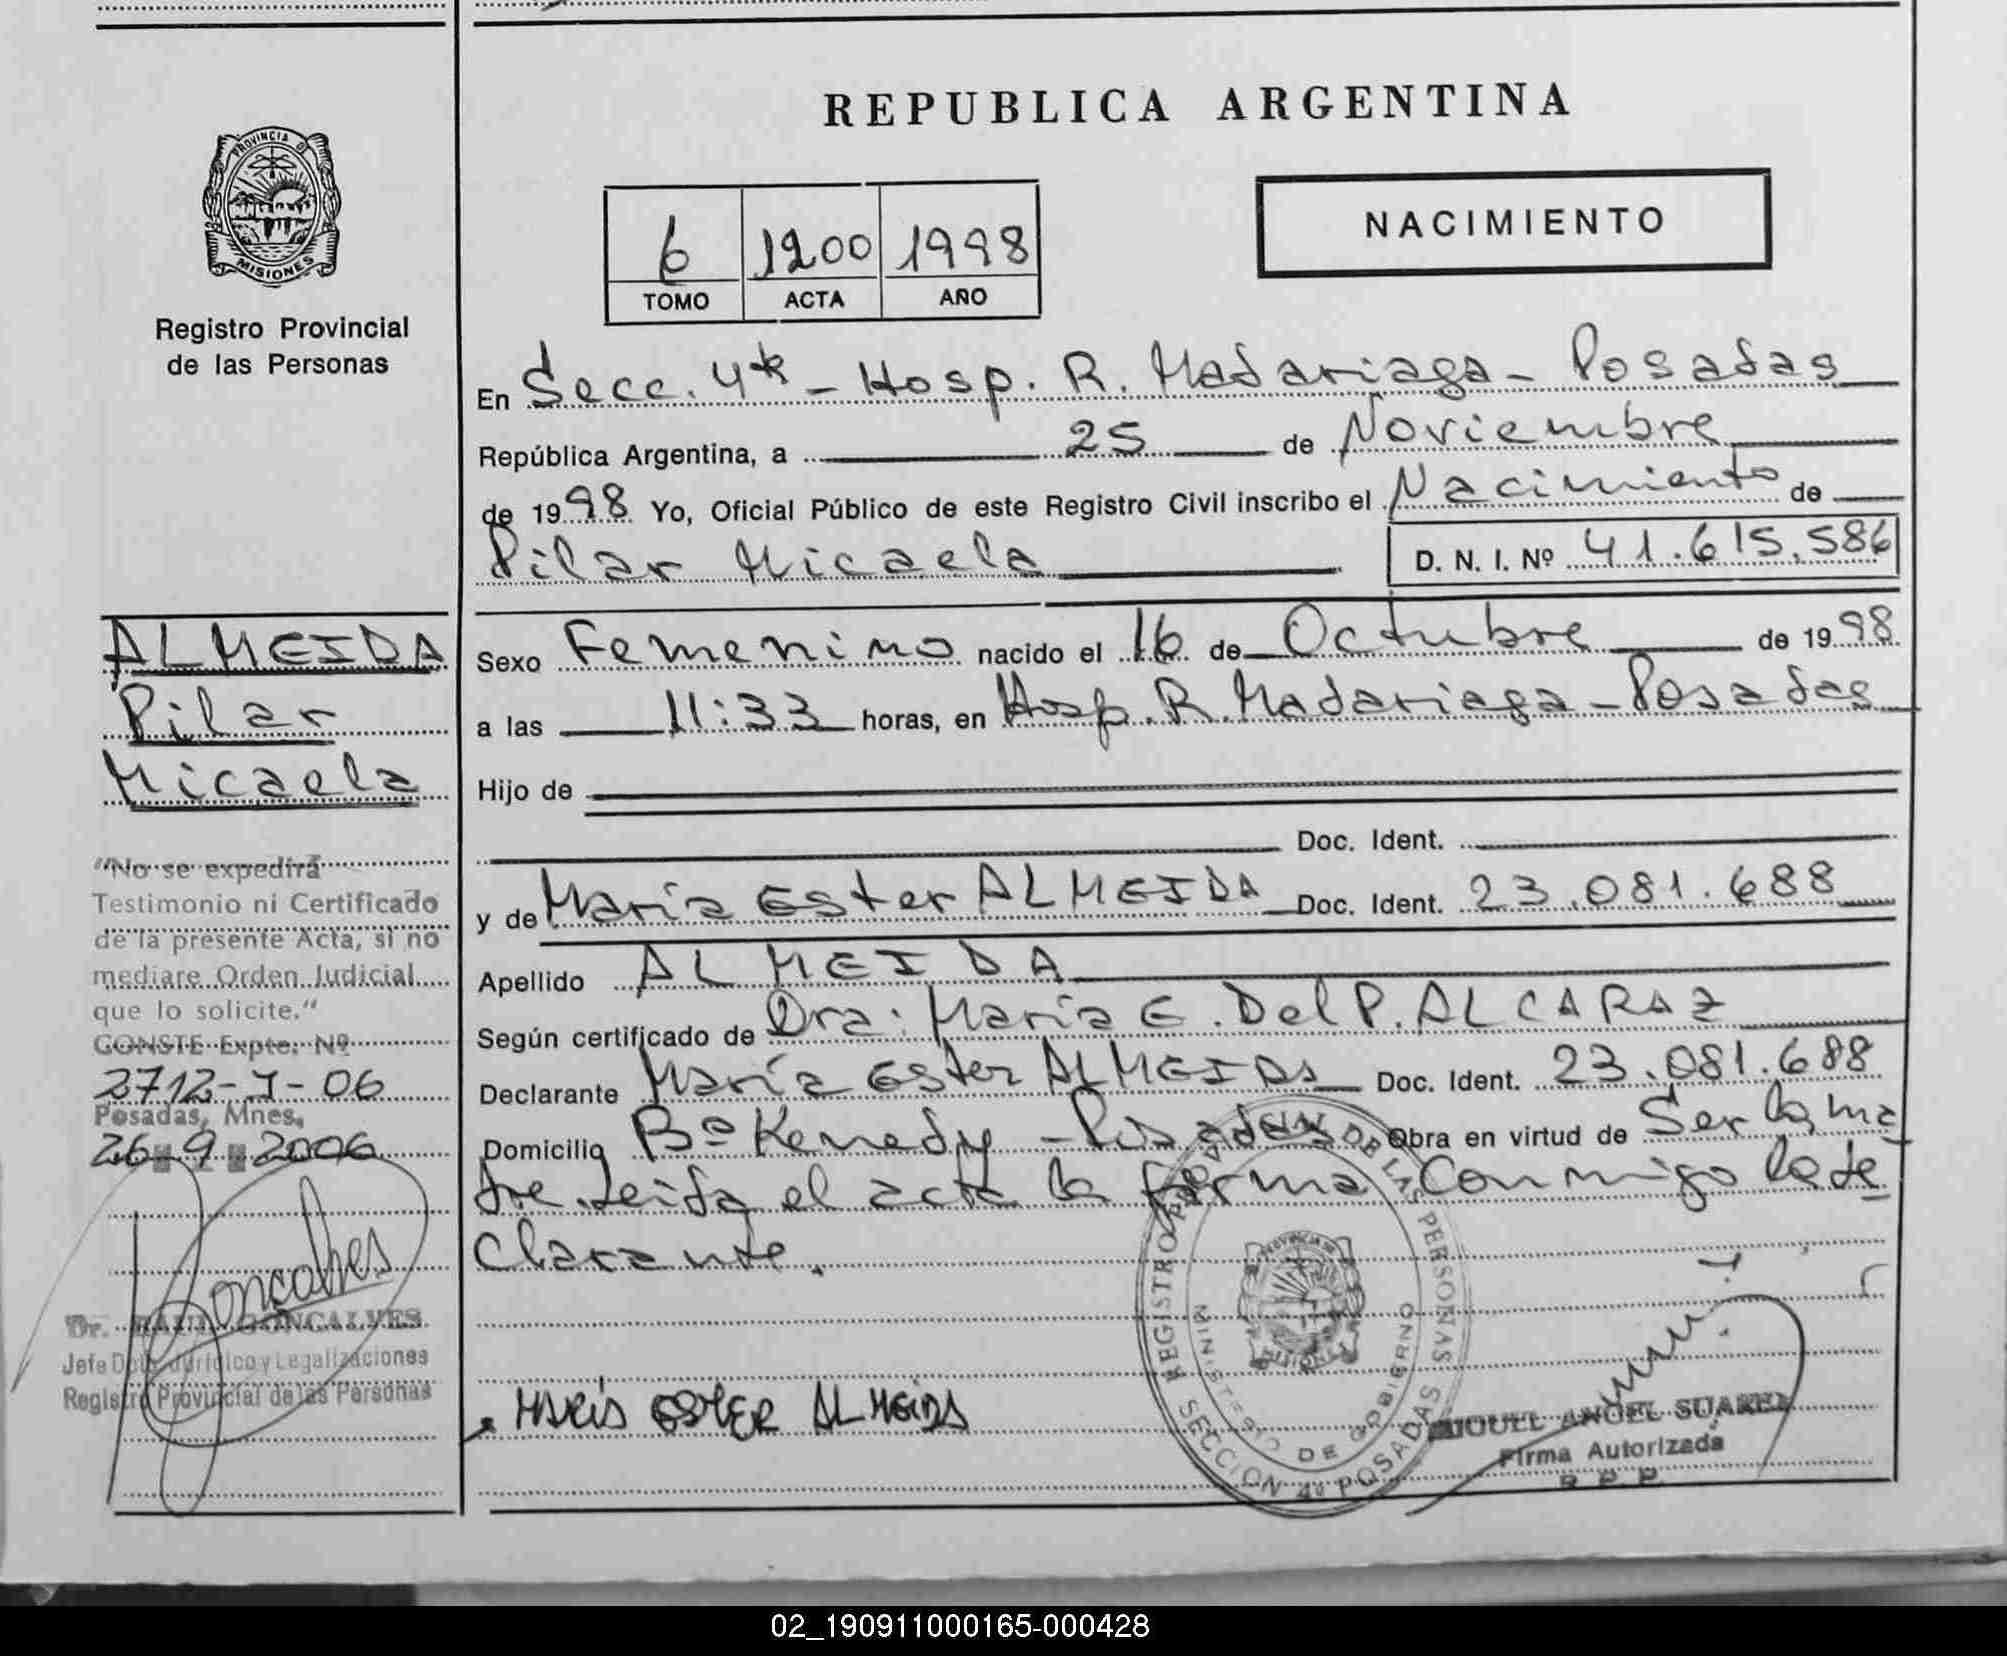 REPUBLICA ARGENTINA
PROVINCIA D
MISIONES
Registro Provincial
de las Personas
NACIMIENTO
6 1200 1998
TOMO ACTA AÑO
En Secc. 4ta - Hosp. R. Madariaga - Posadas
República Argentina, a 25 de Noviembre
de 1998 Yo, Oficial Público de este Registro Civil inscribo el Nacimiento de
Pilar Micaela D. N. I. Nº 41.615.586
ALMEIDA
Pilar
Micaela
Sexo Femenino nacido el 16 de Octubre de 1998
a las 11:33 horas, en Hosp. R. Madariaga - Posadas
Hijo de
Doc. Ident.
y de María Ester ALMEIDA Doc. Ident. 23.081.688
Apellido ALMEIDA
Según certificado de Dra: María E. Del P. ALCARAZ
Declarante María Ester ALMEIDA Doc. Ident. 23.081.688
Domicilio Bº Kenedy - Posadas Obra en virtud de Ser la ma
dre. Leida el acta la firma Conmigo la de
Clarante.
"No se expedirá
Testimonio ni Certificado
de la presente Acta, si no
mediare Orden Judicial
que lo solicite."
CONSTE Expte. Nº
2712-J-06
Posadas, Mnes,
26 9 2006
Goncalves
Dr. RAUL GONCALVES
Jefe Dpto. Jurídico y Legalizaciones
Registro Provincial de las Personas
MARIA ESTER ALMEIDA
REGISTRO PROVINCIAL DE LAS PERSONAS
MINISTERIO DE GOBIERNO
MISIONES
SECCION 4ª POSADAS
MIGUEL ANGEL SUAREZ
Firma Autorizada
R. P. P.
02_190911000165-000428